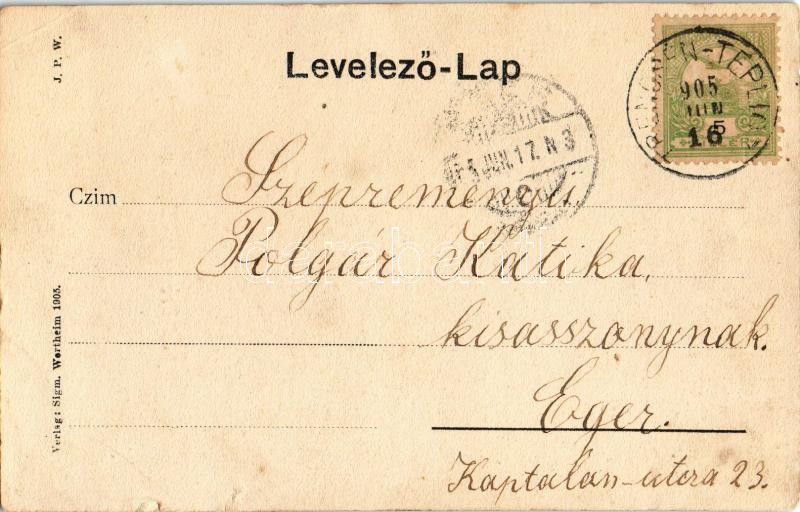 J. P. W.
Levelező-Lap
TRENCSÉN-TEPLICZ
905
JUN
16
5
FILLÉR
JUN. 17. N 3
Czim
Szépreményű
Polgár Katika,
kisasszonynak.
Eger.
Kaptalan-utcza 23.
Verlag: Sigm. Wertheim 1905.